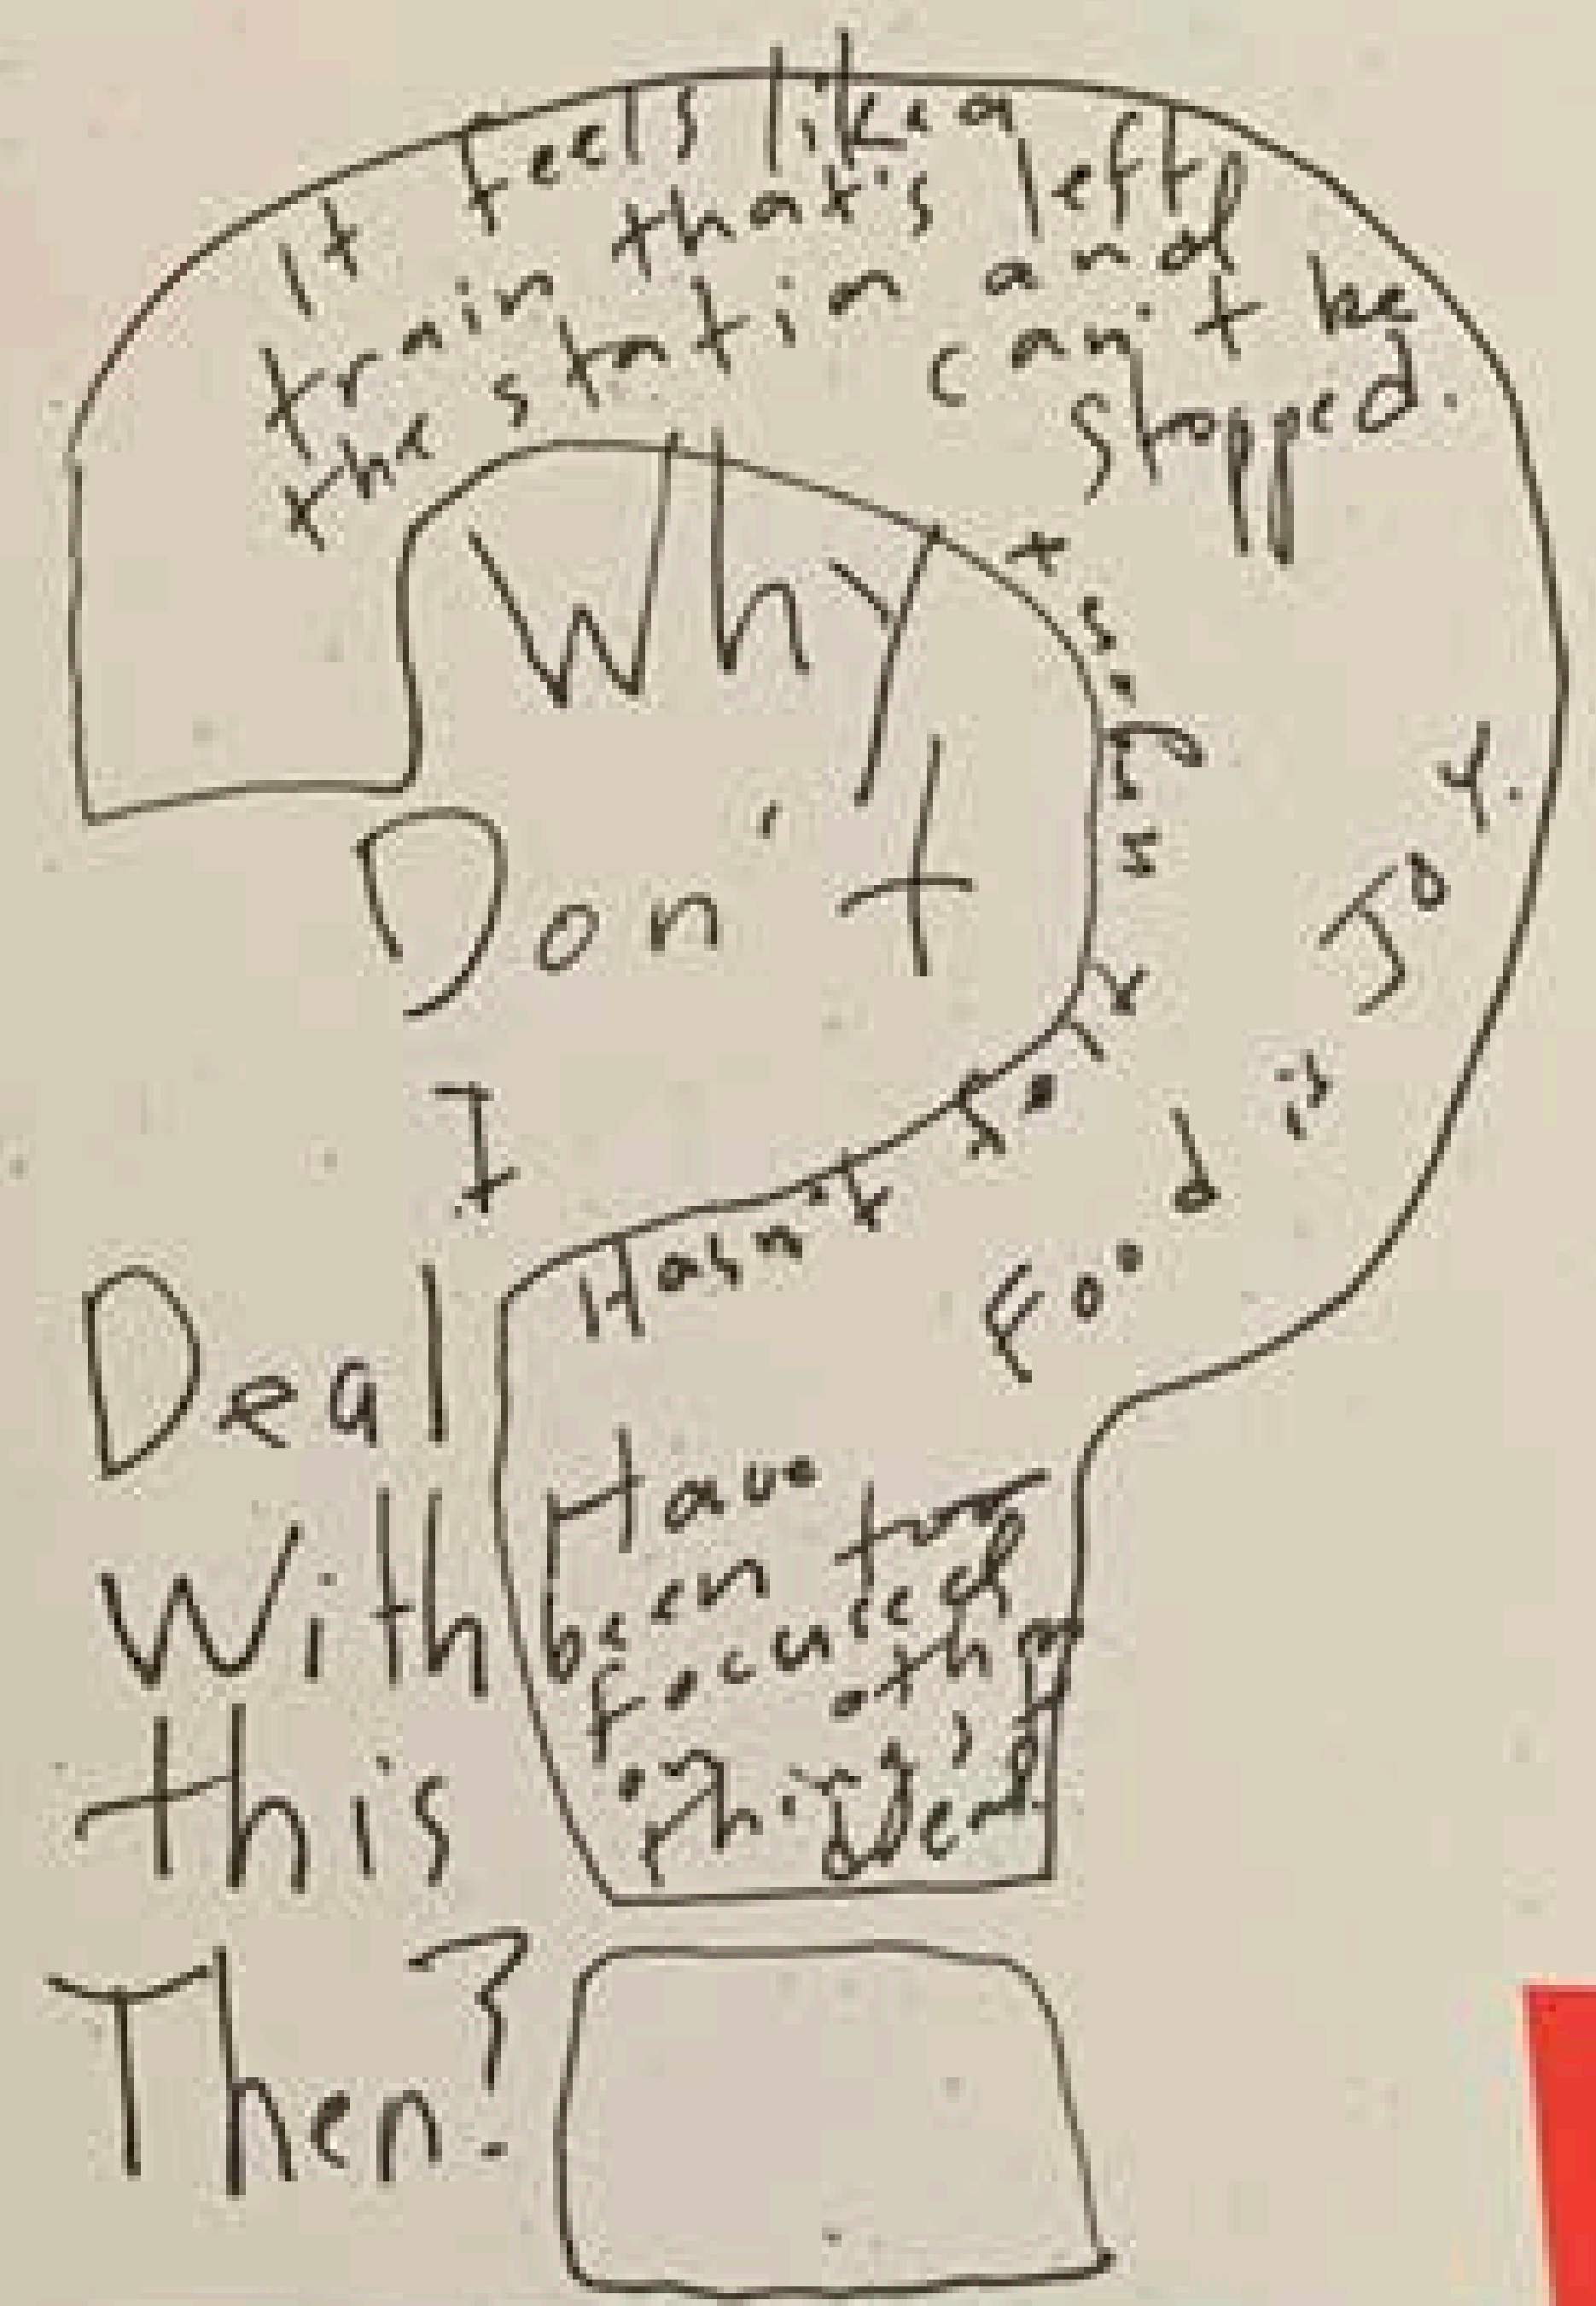 It feels like a
train that's left
the station and
can't be
stopped.
Hasn't felt urgent
Food is Joy.
Have
been too
focused
on other
things,
Why
Don't
I
Deal
With
this
Then?